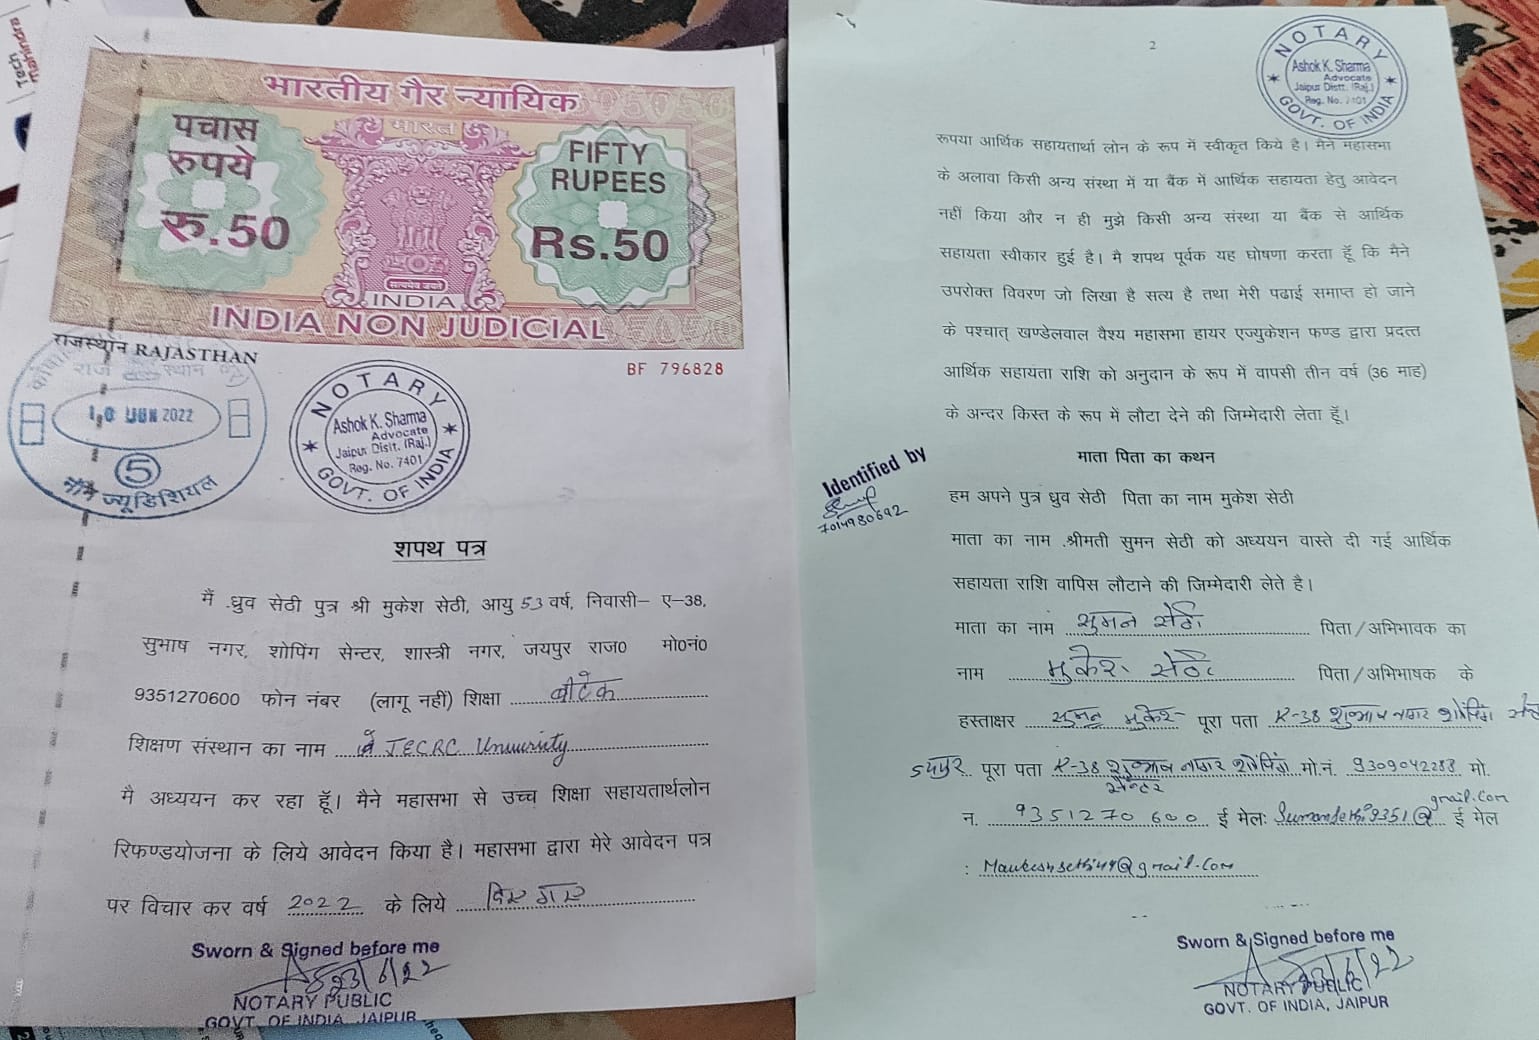 Tech
mahindra
भारतीय गैर न्यायिक
पचास
रुपये
रु.50
भारत
सत्यमेव जयते
INDIA
FIFTY
RUPEES
Rs.50
INDIA NON JUDICIAL
राजस्थान RAJASTHAN
BF 796828
10 JUN 2022
5
नॉन ज्यूडिशियल
NOTARY
Ashok K. Sharma
Advocate
Jaipur Distt. (Raj.)
Reg. No. 7401
GOVT. OF INDIA
शपथ पत्र
मैं .ध्रुव सेठी पुत्र श्री मुकेश सेठी, आयु 53 वर्ष, निवासी– ए–38,
सुभाष नगर, शोपिंग सेन्टर, शास्त्री नगर, जयपुर राज0 मो0नं0
9351270600 फोन नंबर (लागू नहीं) शिक्षा बीटेक
शिक्षण संस्थान का नाम JECRC University
मै अध्ययन कर रहा हूॅ। मैने महासभा से उच्च शिक्षा सहायतार्थलोन
रिफण्डयोजना के लिये आवेदन किया है। महासभा द्वारा मेरे आवेदन पत्र
पर विचार कर वर्ष 2022 के लिये दिए गए
Sworn & Signed before me
23/6/22
NOTARY PUBLIC
GOVT. OF INDIA, JAIPUR
2
NOTARY
Ashok K. Sharma
Advocate
Jaipur Distt. (Raj.)
Reg. No. 7401
GOVT. OF INDIA
रूपया आर्थिक सहायतार्था लोन के रूप में स्वीकृत किये है। मैने महासभा
के अलावा किसी अन्य संस्था में या बैंक में आर्थिक सहायता हेतु आवेदन
नहीं किया और न ही मुझे किसी अन्य संस्था या बैंक से आर्थिक
सहायता स्वीकार हुई है। मै शपथ पूर्वक यह घोषणा करता हूॅ कि मैने
उपरोक्त विवरण जो लिखा है सत्य है तथा मेरी पढाई समाप्त हो जाने
के पश्चात् खण्डेलवाल वैश्य महासभा हायर एज्युकेशन फण्ड द्वारा प्रदत्त
आर्थिक सहायता राशि को अनुदान के रूप में वापसी तीन वर्ष (36 माह)
के अन्दर किस्त के रूप में लौटा देने की जिम्मेदारी लेता हूॅ।
Identified by
7014980692
माता पिता का कथन
हम अपने पुत्र ध्रुव सेठी पिता का नाम मुकेश सेठी
माता का नाम .श्रीमती सुमन सेठी को अध्ययन वास्ते दी गई आर्थिक
सहायता राशि वापिस लौटाने की जिम्मेदारी लेते है।
माता का नाम सुमन सेठी पिता/अभिभावक का
नाम मुकेश सेठी पिता/अभिभाषक के
हस्ताक्षर सुमन मुकेश पूरा पता K-38 सुभाष नगर शोपिंग
जयपुर पूरा पता K-38 सुभाष नगर शोपिंग सेन्टर मो.नं. 9309042288 मो.
न. 9351270600 ई मेलः Sumansethi9351@gmail.com ई मेल
: Maukeshsethi44@gmail.com
Sworn & Signed before me
23/6/22
NOTARY PUBLIC
GOVT. OF INDIA, JAIPUR